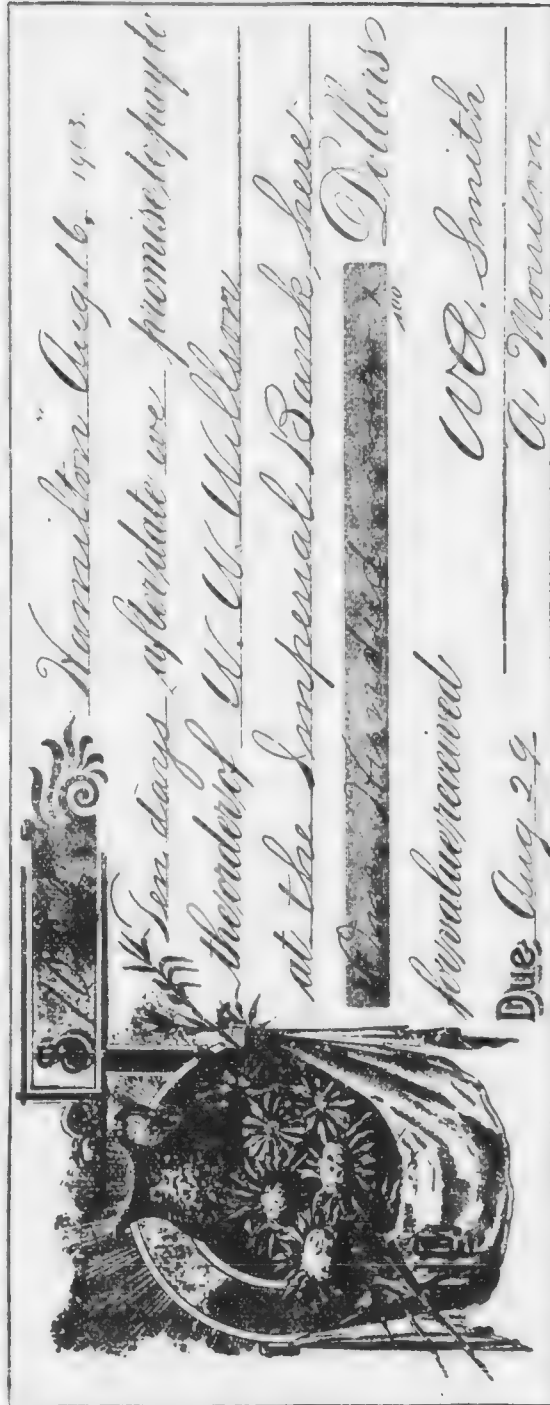 Hamilton Aug. 16, 1913.
Ten days after date we promise to pay to
the order of W. W. Willson
at the Imperial Bank, here.
Hundred x/100 Dollars
for value received
W. A. Smith
Due Aug 29 A Morrison